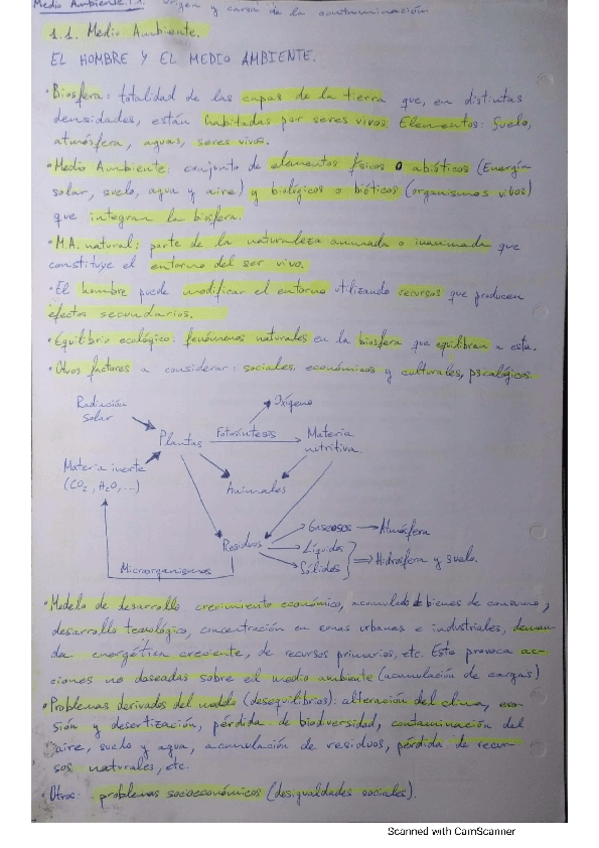 Medio Ambiente. 1.1. Origen y causa de la contaminación
1.1. Medio Ambiente.
EL HOMBRE Y EL MEDIO AMBIENTE.
·Biosfera: totalidad de las capas de la tierra que, en distintas
densidades, están habitadas por seres vivos. Elementos: Suelo,
atmósfera, aguas, seres vivos.
·Medio Ambiente: conjunto de elementos físicos o abióticos (Energía
solar, suelo, agua y aire) y biológicos o bióticos (organismos vivos)
que integran la biosfera.
·M.A. natural: parte de la naturaleza animada o inanimada que
constituye el entorno del ser vivo.
·El hombre puede modificar el entorno utilizando recursos que producen
efectos secundarios.
·Equilibrio ecológico: fenómenos naturales en la biosfera que equilibran a esta.
·Otros factores a considerar: sociales, económicos y culturales, psicológicos.
Radiación
solar
Oxígeno
Plantas
Fotosíntesis
Materia
nutritiva
Materia inerte
(CO2, H2O, ...)
Animales
Residuos
Gaseosos → Atmósfera
Líquidos
Sólidos
Hidrosfera y suelo.
Microorganismos
·Modelo de desarrollo crecimiento económico, acumulado de bienes de consumo,
desarrollo tecnológico, concentración en zonas urbanas e industriales, deman
da energética creciente, de recursos primarios, etc. Esto provoca ac-
ciones no deseadas sobre el medio ambiente (acumulación de cargas)
·Problemas derivados del modelo (desequilibrios): alteración del clima, ero
sión y desertización, pérdida de biodiversidad, contaminación del
aire, suelo y agua, acumulación de residuos, pérdida de recur-
sos naturales, etc.
·Otros: problemas socioeconómicos (desigualdades sociales).
Scanned with CamScanner